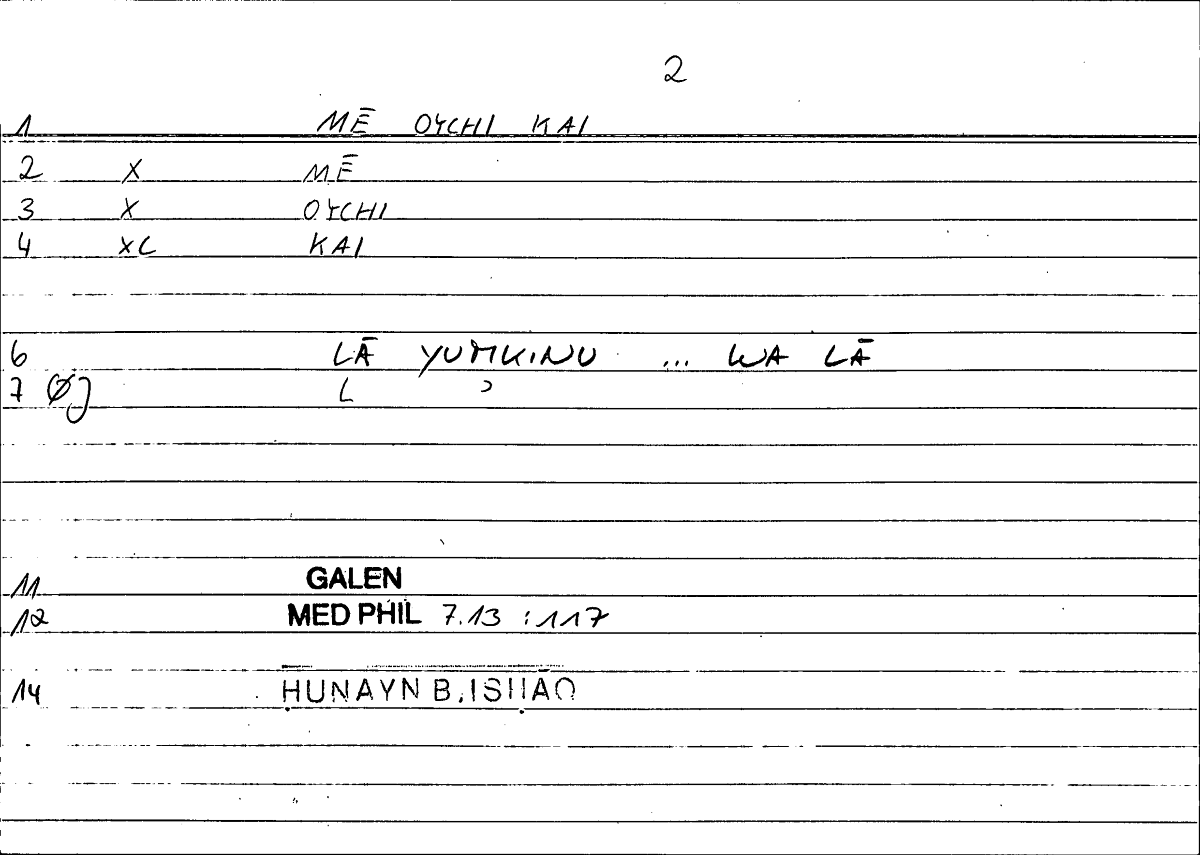 2
1 MĒ OYCHI KAI
2 X MĒ
3 X OYCHI
4 XC KAI
6 LĀ YUMKINU ... WA LĀ
7 Ø] L ʾ
11 GALEN
12 MED PHIL 7.13 :117
14 ḤUNAYN B. ISḤĀQ